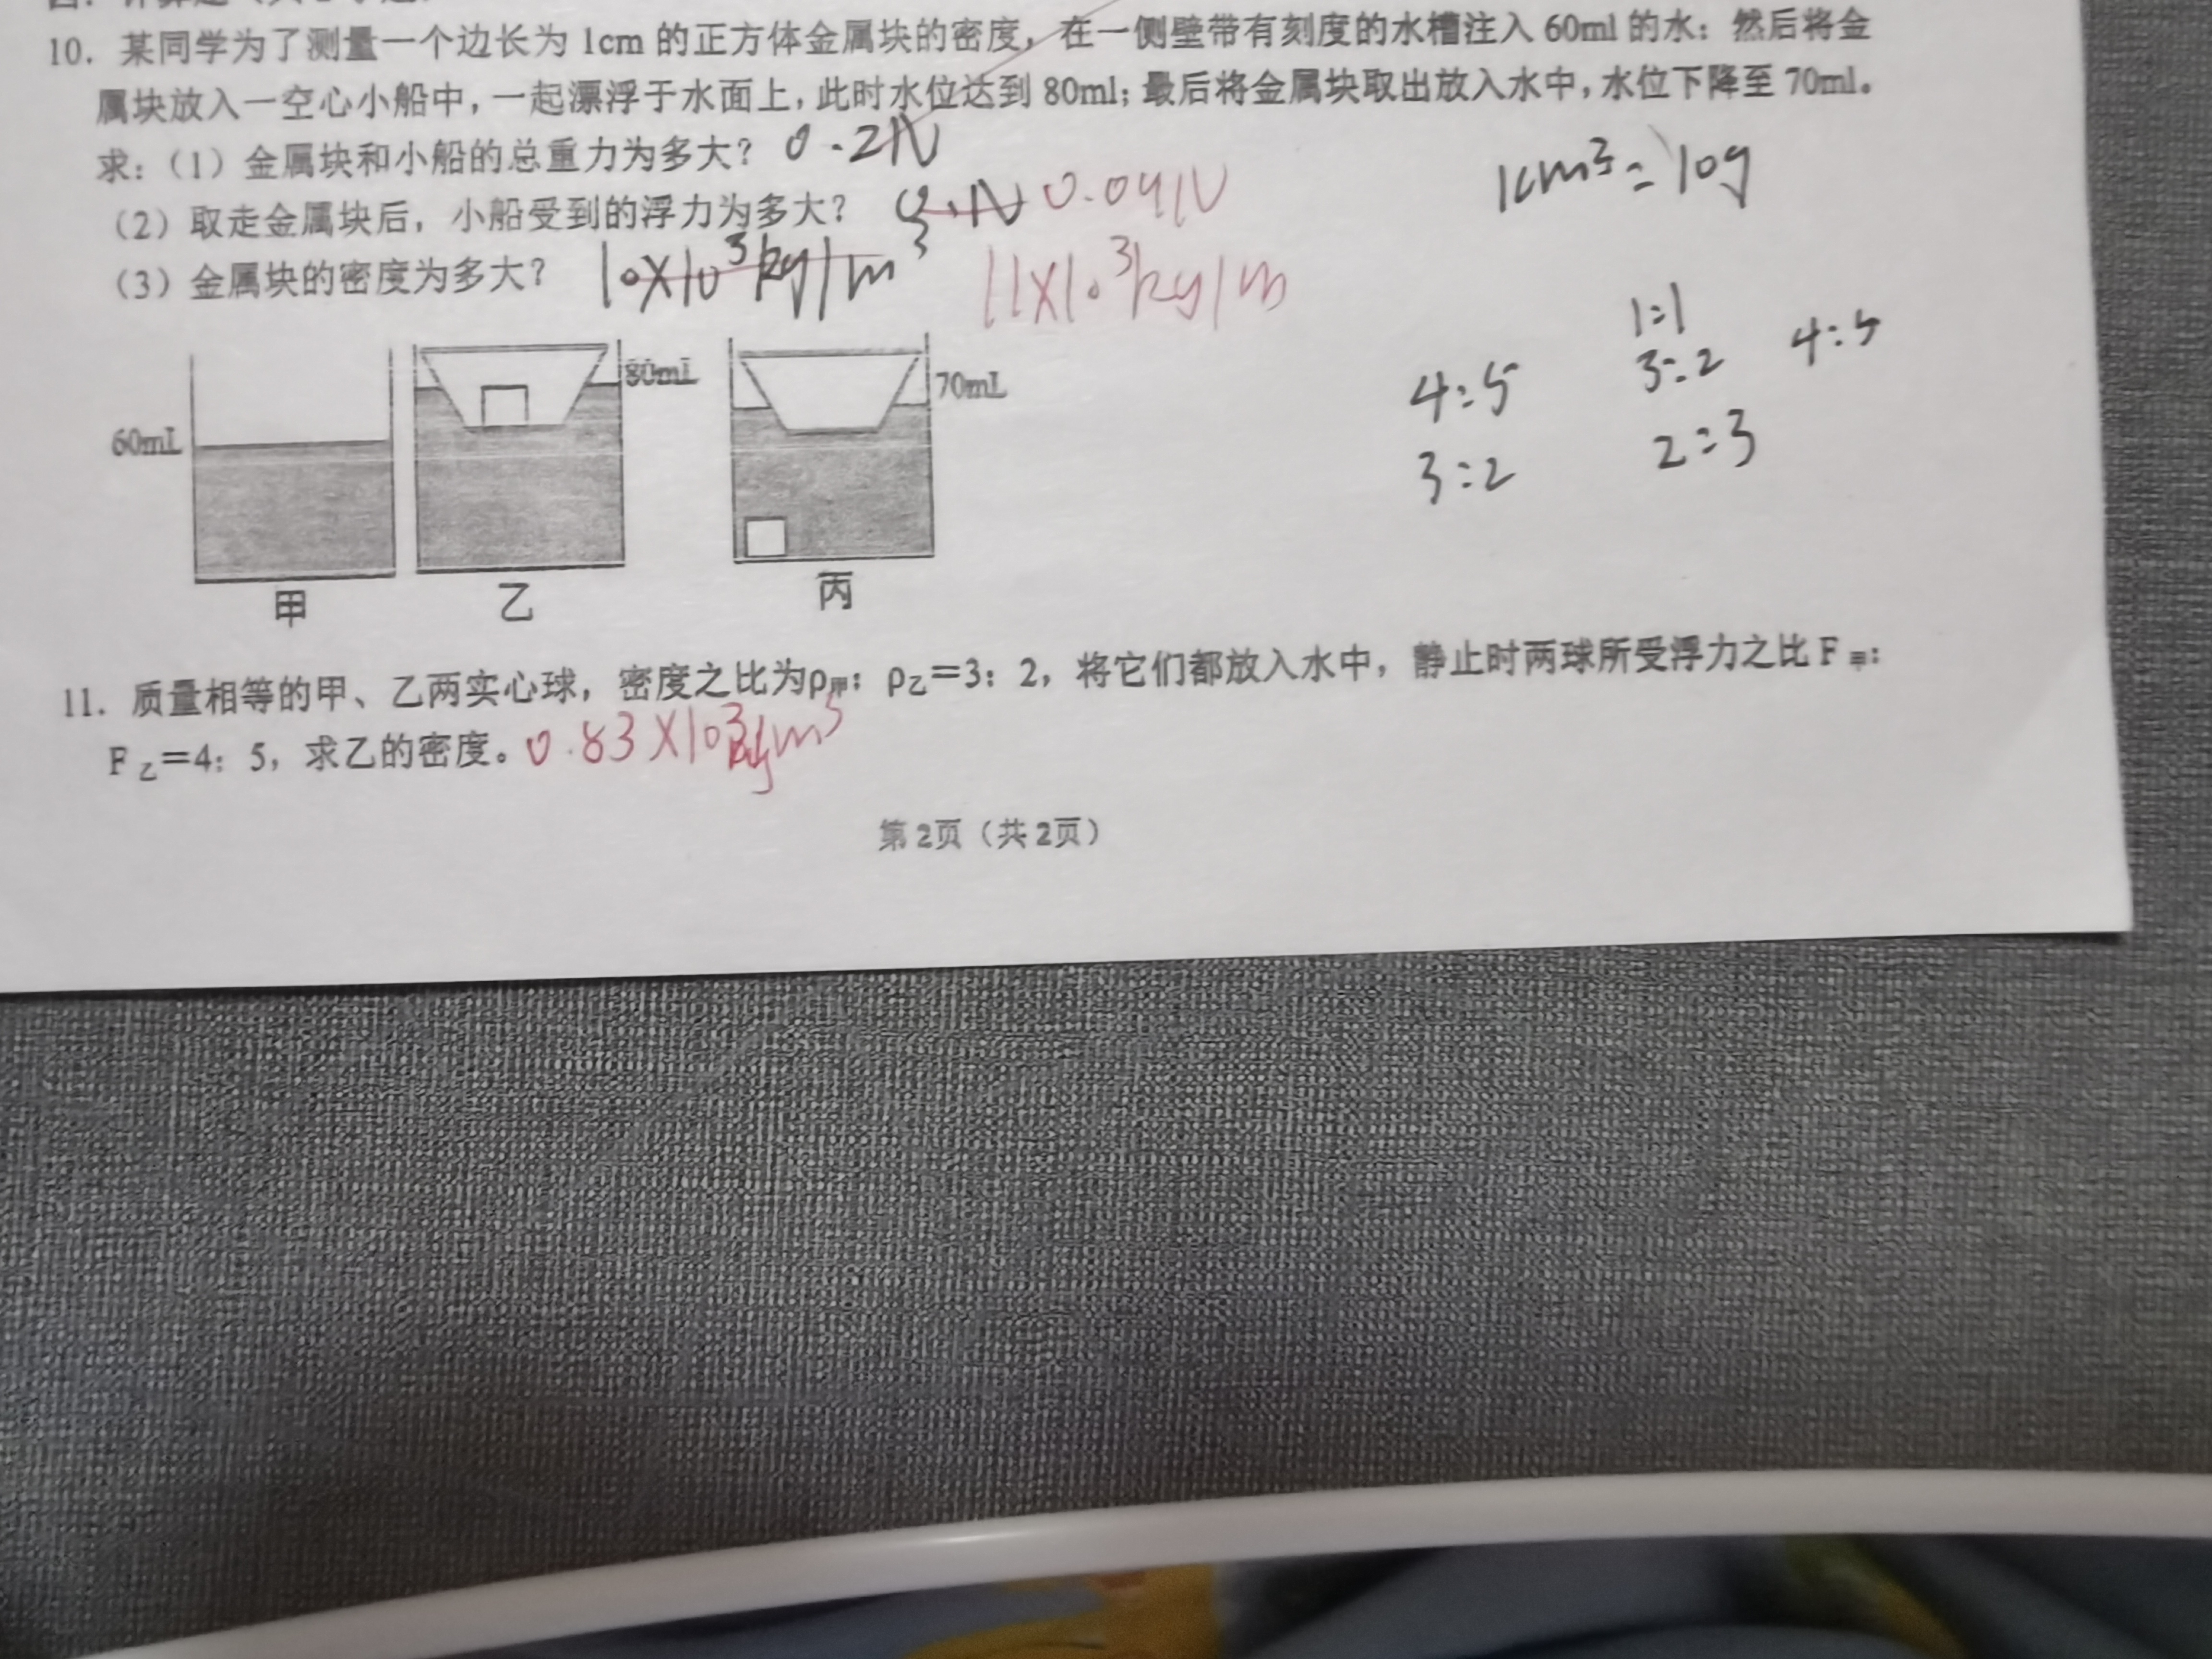 10. 某同学为了测量一个边长为 1cm 的正方体金属块的密度，在一侧壁带有刻度的水槽注入 60ml 的水；然后将金
属块放入一空心小船中，一起漂浮于水面上，此时水位达到 80ml；最后将金属块取出放入水中，水位下降至 70ml。
求：（1）金属块和小船的总重力为多大？ 0.2N
1cm³=10g
（2）取走金属块后，小船受到的浮力为多大？ 0.09N
（3）金属块的密度为多大？ 10X10³kg/m³ 11X10³kg/m
1:1
4:5 3:2 4:5
3:2 2:3
60mL 80mL 70mL
甲 乙 丙
11. 质量相等的甲、乙两实心球，密度之比为ρ甲：ρ乙＝3：2，将它们都放入水中，静止时两球所受浮力之比 F甲：
F乙＝4：5，求乙的密度。0.83X10³kg/m³
第 2页（共 2页）